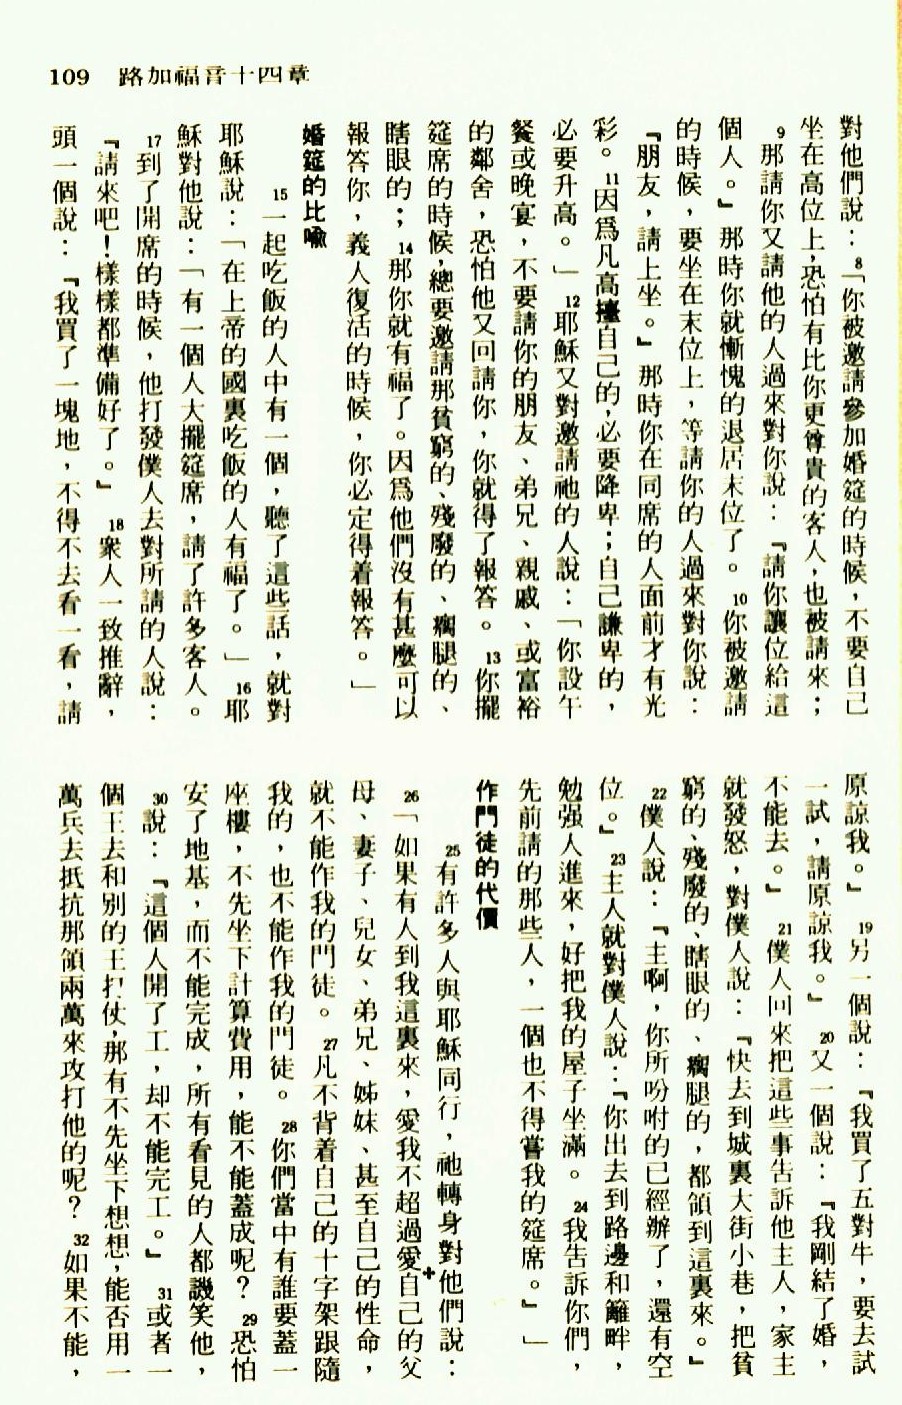 109 路加福音十四章
對他們說：8「你被邀請參加婚筵的時候，不要自己
坐在高位上，恐怕有比你更尊貴的客人，也被請來；
9那請你又請他的人過來對你說：『請你讓位給這
個人。』那時你就慚愧的退居末位了。10你被邀請
的時候，要坐在末位上，等請你的人過來對你說：
『朋友，請上坐。』那時你在同席的人面前才有光
彩。11因爲凡高擡自己的，必要降卑；自己謙卑的，
必要升高。」12耶穌又對邀請祂的人說：「你設午
餐或晚宴，不要請你的朋友、弟兄、親戚、或富裕
的鄰舍，恐怕他又回請你，你就得了報答。13你擺
筵席的時候，總要邀請那貧窮的、殘廢的、瘸腿的、
瞎眼的；14那你就有福了。因爲他們沒有甚麼可以
報答你，義人復活的時候，你必定得着報答。」
婚筵的比喩
15一起吃飯的人中有一個，聽了這些話，就對
耶穌說：「在上帝的國裏吃飯的人有福了。」16耶
穌對他說：「有一個人大擺筵席，請了許多客人。
17到了開席的時候，他打發僕人去對所請的人說：
『請來吧！樣樣都準備好了。』18衆人一致推辭，
頭一個說：『我買了一塊地，不得不去看一看，請
原諒我。』19另一個說：『我買了五對牛，要去試
一試，請原諒我。』20又一個說：『我剛結了婚，
不能去。』21僕人回來把這些事告訴他主人，家主
就發怒，對僕人說：『快去到城裏大街小巷，把貧
窮的、殘廢的、瞎眼的、瘸腿的，都領到這裏來。』
22僕人說：『主啊，你所吩咐的已經辦了，還有空
位。』23主人就對僕人說：『你出去到路邊和籬畔，
勉强人進來，好把我的屋子坐滿。24我告訴你們，
先前請的那些人，一個也不得嘗我的筵席。』」
作門徒的代價
25有許多人與耶穌同行，祂轉身對他們說：
26「如果有人到我這裏來，愛我不超過愛自己的父
母、妻子、兒女、弟兄、姊妹、甚至自己的性命，
就不能作我的門徒。27凡不背着自己的十字架跟隨
我的，也不能作我的門徒。28你們當中有誰要蓋一
座樓，不先坐下計算費用，能不能蓋成呢？29恐怕
安了地基，而不能完成，所有看見的人都譏笑他，
30說：『這個人開了工，却不能完工。』31或者一
個王去和別的王打仗，那有不先坐下想想，能否用一
萬兵去抵抗那領兩萬來攻打他的呢？32如果不能，